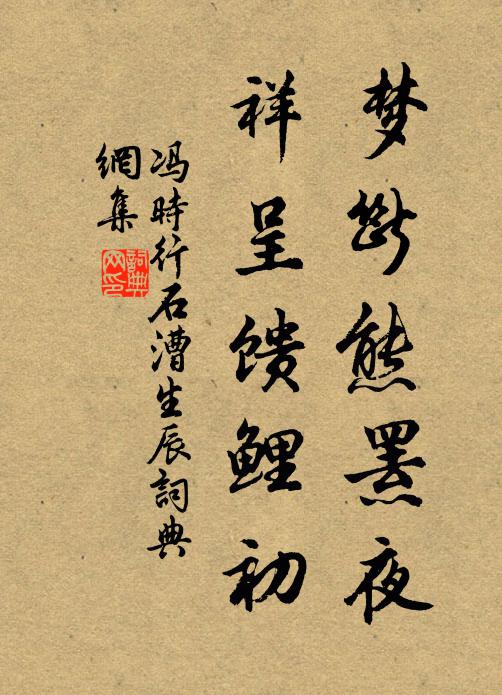 梦断熊罴夜
祥呈馈鲤初
冯時行石漕生辰詞典
網集
詞典
网印